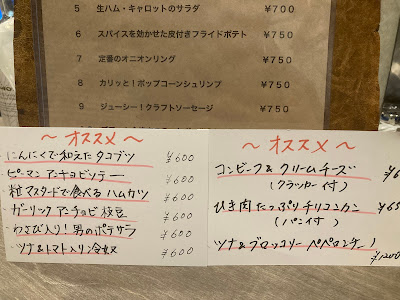 5 生ハム・キャロットのサラダ ¥700
6 スパイスを効かせた皮付きフライドポテト ¥750
7 定番のオニオンリング ¥750
8 カリッと!ポップコーンシュリンプ ¥750
9 ジューシー!クラフトソーセージ ¥750
～オススメ～
にんにくで和えたタコブツ ¥600
ピーマンアンチョビソテー ¥600
粒マスタードで食べるハムカツ ¥600
ガーリックアンチョビ枝豆 ¥600
わさび入り!男のポテサラ ¥600
ツナ&トマト入り冷奴 ¥600
～オススメ～
コンビーフ&クリームチーズ
(クラッカー付)
ひき肉たっぷりチリコンカン
(パン付)
ツナ&ブロッコリーペペロンチーノ
¥1200